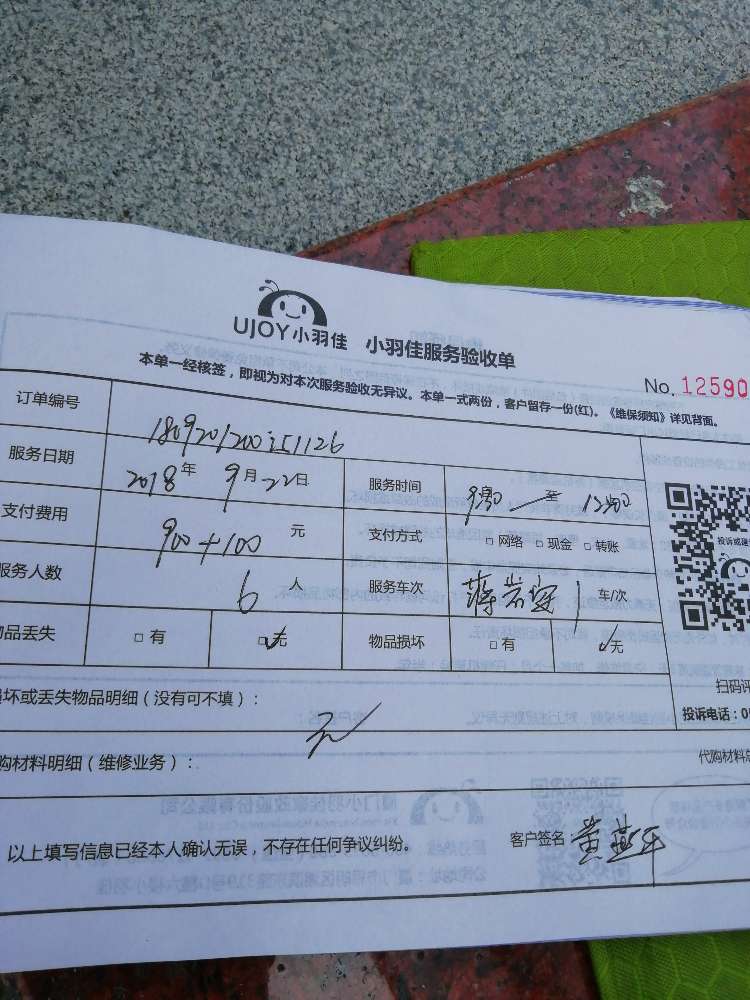 UJOY小羽佳 小羽佳服务验收单
本单一经核签，即视为对本次服务验收无异议。本单一式两份，客户留存一份(红)。《维保须知》详见背面。
No. 12590
订单编号
服务日期 2018年9月22日 服务时间 9:30 — 至 12:00
支付费用 900+100 元 支付方式 □网络 □现金 □转账
服务人数 6 人 服务车次 1 车/次
品丢失 □有 □无 物品损坏 □有 无
坏或丢失物品明细（没有可不填）：
无
购材料明细（维修业务）：
代购材料
以上填写信息已经本人确认无误，不存在任何争议纠纷。 客户签名：黄燕
投诉或
扫码
投诉电话：0